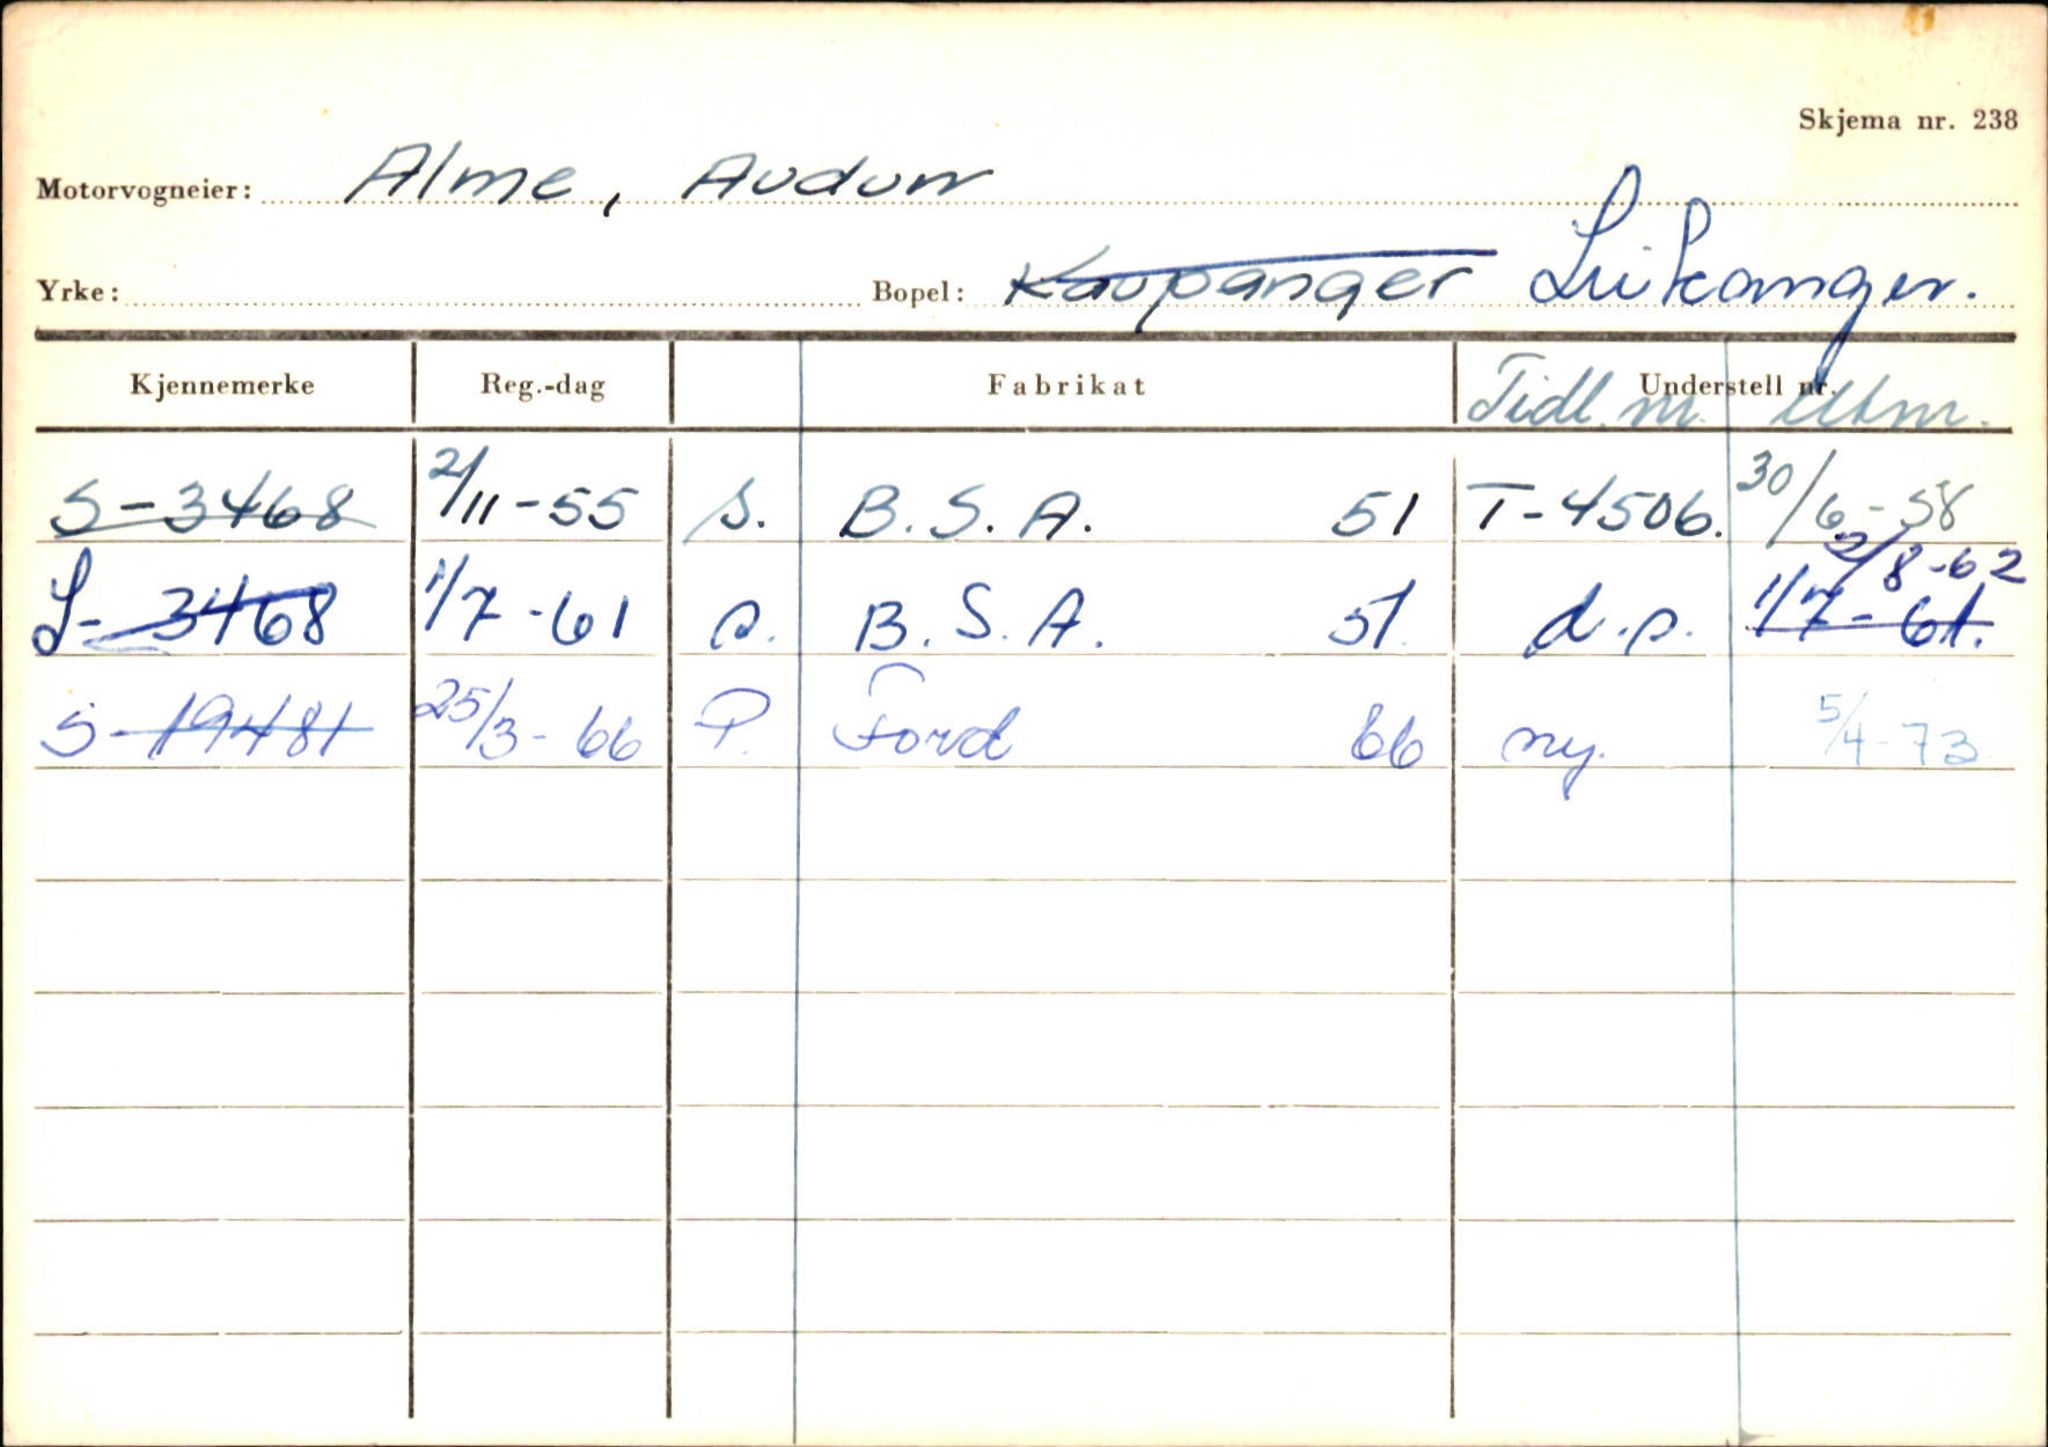 Skjema nr. 238
Motorvogneier: Alme, Audun
Yrke: Bopel: Kaupanger Leikanger.
Kjennemerke Reg.-dag Fabrikat Understell nr.
Tidl. nr. Utm.
S-3468 2/11-55 s. B.S.A. 51 T-4506. 30/6-58
2/8-62
S-3468 1/7-61 s. B.S.A. 51 d.s. 1/7-61.
S-19481 25/3-66 P. Ford 66 ny. 5/4-73